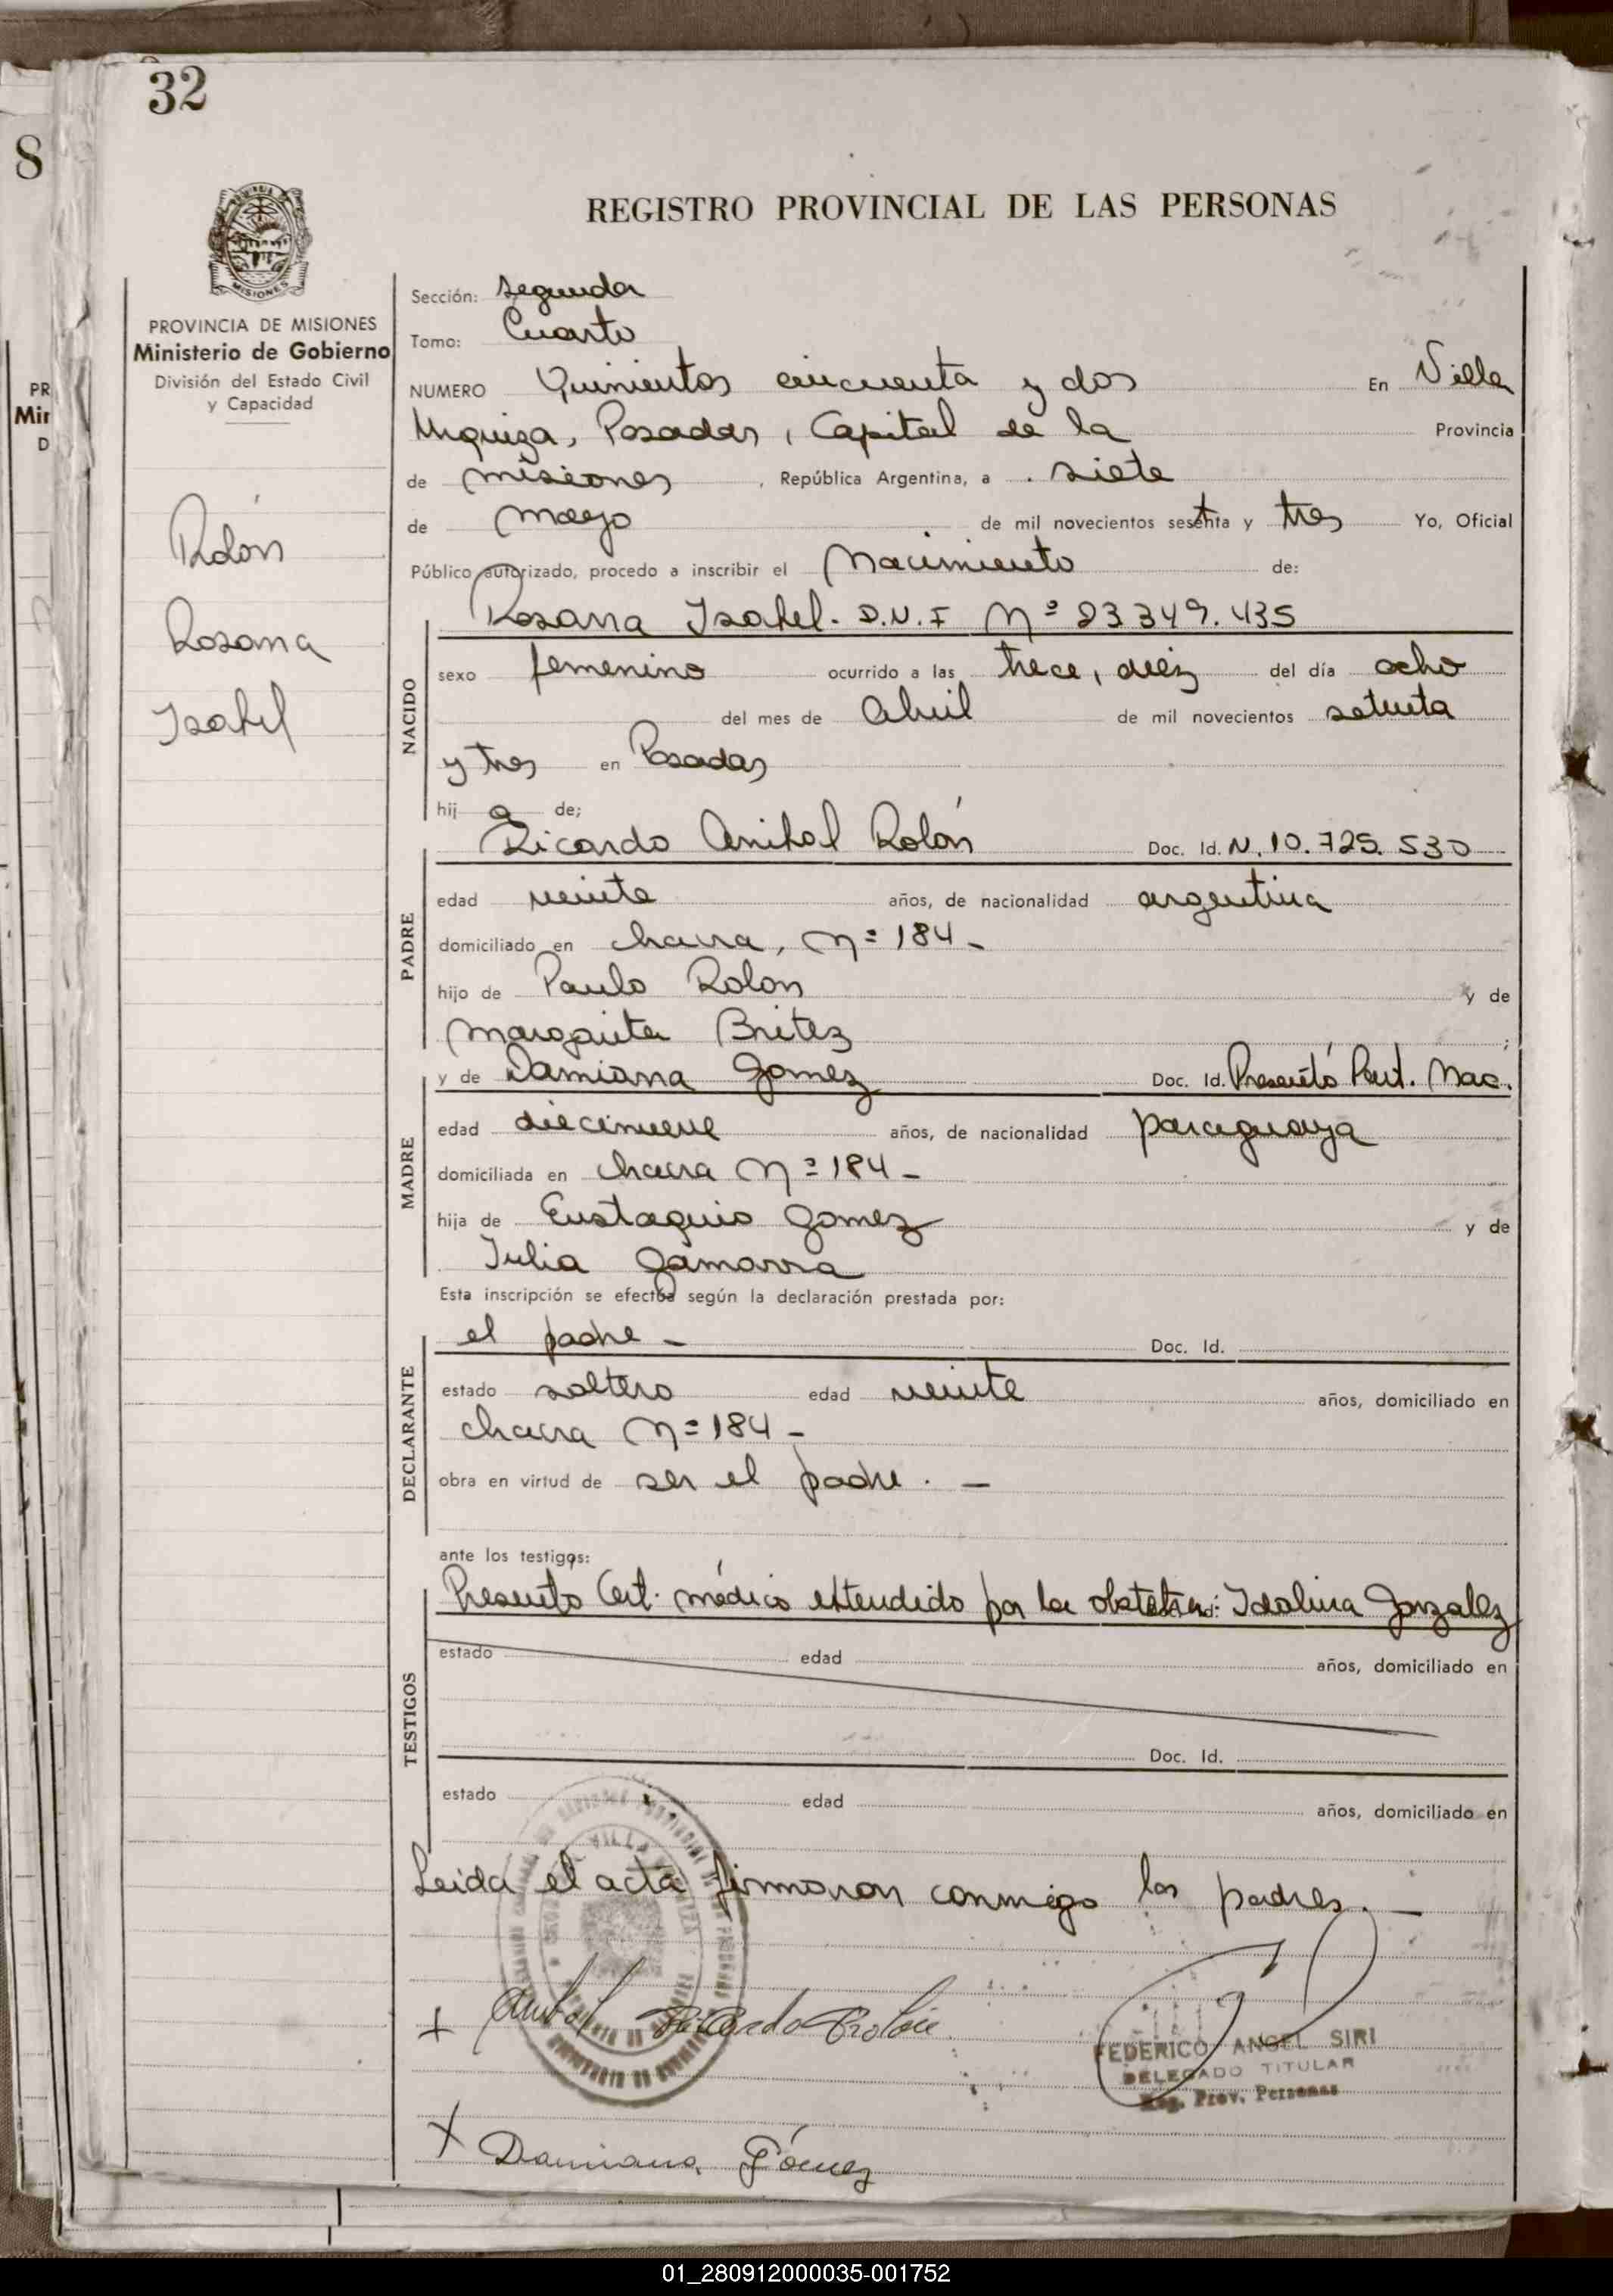 32
8
REGISTRO PROVINCIAL DE LAS PERSONAS
MISIONES
PROVINCIA DE MISIONES
Ministerio de Gobierno
División del Estado Civil
y Capacidad
PR
Mir
D
Rolón
Rosana
Isabel
Sección: Segunda
Tomo: Cuarto
NUMERO Quinientos cincuenta y dos En Villa
Urquiza, Posadas, Capital de la Provincia
de misiones, República Argentina, a siete
de mayo de mil novecientos sesenta y tres Yo, Oficial
Público autorizado, procedo a inscribir el Nacimiento de:
NACIDO
Rosana Isabel. D.N.I Nº 23.349.435
sexo femenino ocurrido a las trece, diez del día ocho
del mes de Abril de mil novecientos setenta
y tres en Posadas
hij a de;
PADRE
Ricardo Anibal Rolón Doc. Id. N. 10.725.530
edad veinte años, de nacionalidad argentina
domiciliado en chacra, Nº 184 -
hijo de Paulo Rolon y de
Margarita Britez ;
MADRE
y de Damiana Gomez Doc. Id. Presentó Part. Nac.
edad diecinueve años, de nacionalidad paraguaya
domiciliada en chacra Nº 184 -
hija de Eustaquio Gomez y de
Julia Gamarra
Esta inscripción se efectúa según la declaración prestada por:
DECLARANTE
el padre - Doc. Id.
estado soltero edad veinte años, domiciliado en
chacra Nº 184 -
obra en virtud de ser el padre. -
ante los testigos:
TESTIGOS
Presento Cert. médico extendido por la obstetra: Idalina Gonzalez
estado edad años, domiciliado en
Doc. Id.
estado edad años, domiciliado en
Leida el acta firmaron conmigo los padres. -
+ Anibal Ricardo Rolón
FEDERICO ANGEL SIRI
DELEGADO TITULAR
Reg. Prov. Personas
X Damiana Gómez
01_280912000035-001752